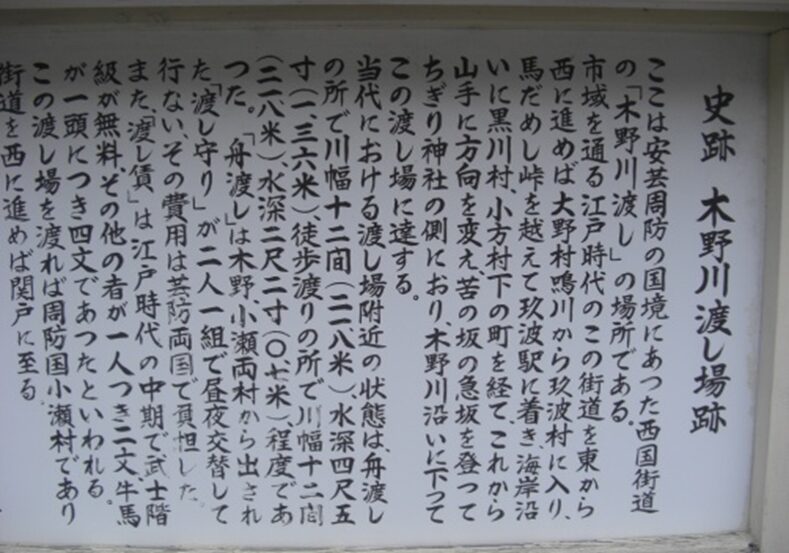 史跡 木野川渡し場跡
ここは安芸周防の国境にあつた西国街道
の「木野川渡し」の場所である。
市域を通る江戸時代のこの街道を東から
西に進めば大野村鳴川から玖波村に入り、
馬だめし峠を越えて玖波駅に着き、海岸沿
いに黒川村、小方村下の町を経て、これから
山手に方向を変え、苦の坂の急坂を登つて
ちぎり神社の側におり、木野川沿いに下つて
この渡し場に達する。
当代における渡し場附近の状態は、舟渡し
の所で川幅十二間(二一八米)水深四尺五
寸(一、三六米)、徒歩渡りの所で川幅十二間
(二一八米)、水深二尺二寸(〇、七米)、程度であ
つた。「舟渡し」は木野、小瀬両村から出され
た「渡し守り」が二人一組で昼夜交替して
行ない、その費用は芸防両国で負担した。
また、「渡し賃」は江戸時代の中期で武士階
級が無料、その他の者が一人つき二文、牛馬
が一頭につき四文であつたといわれる。
この渡し場を渡れば周防国小瀬村であり
街道を西に進めば関戸に至る